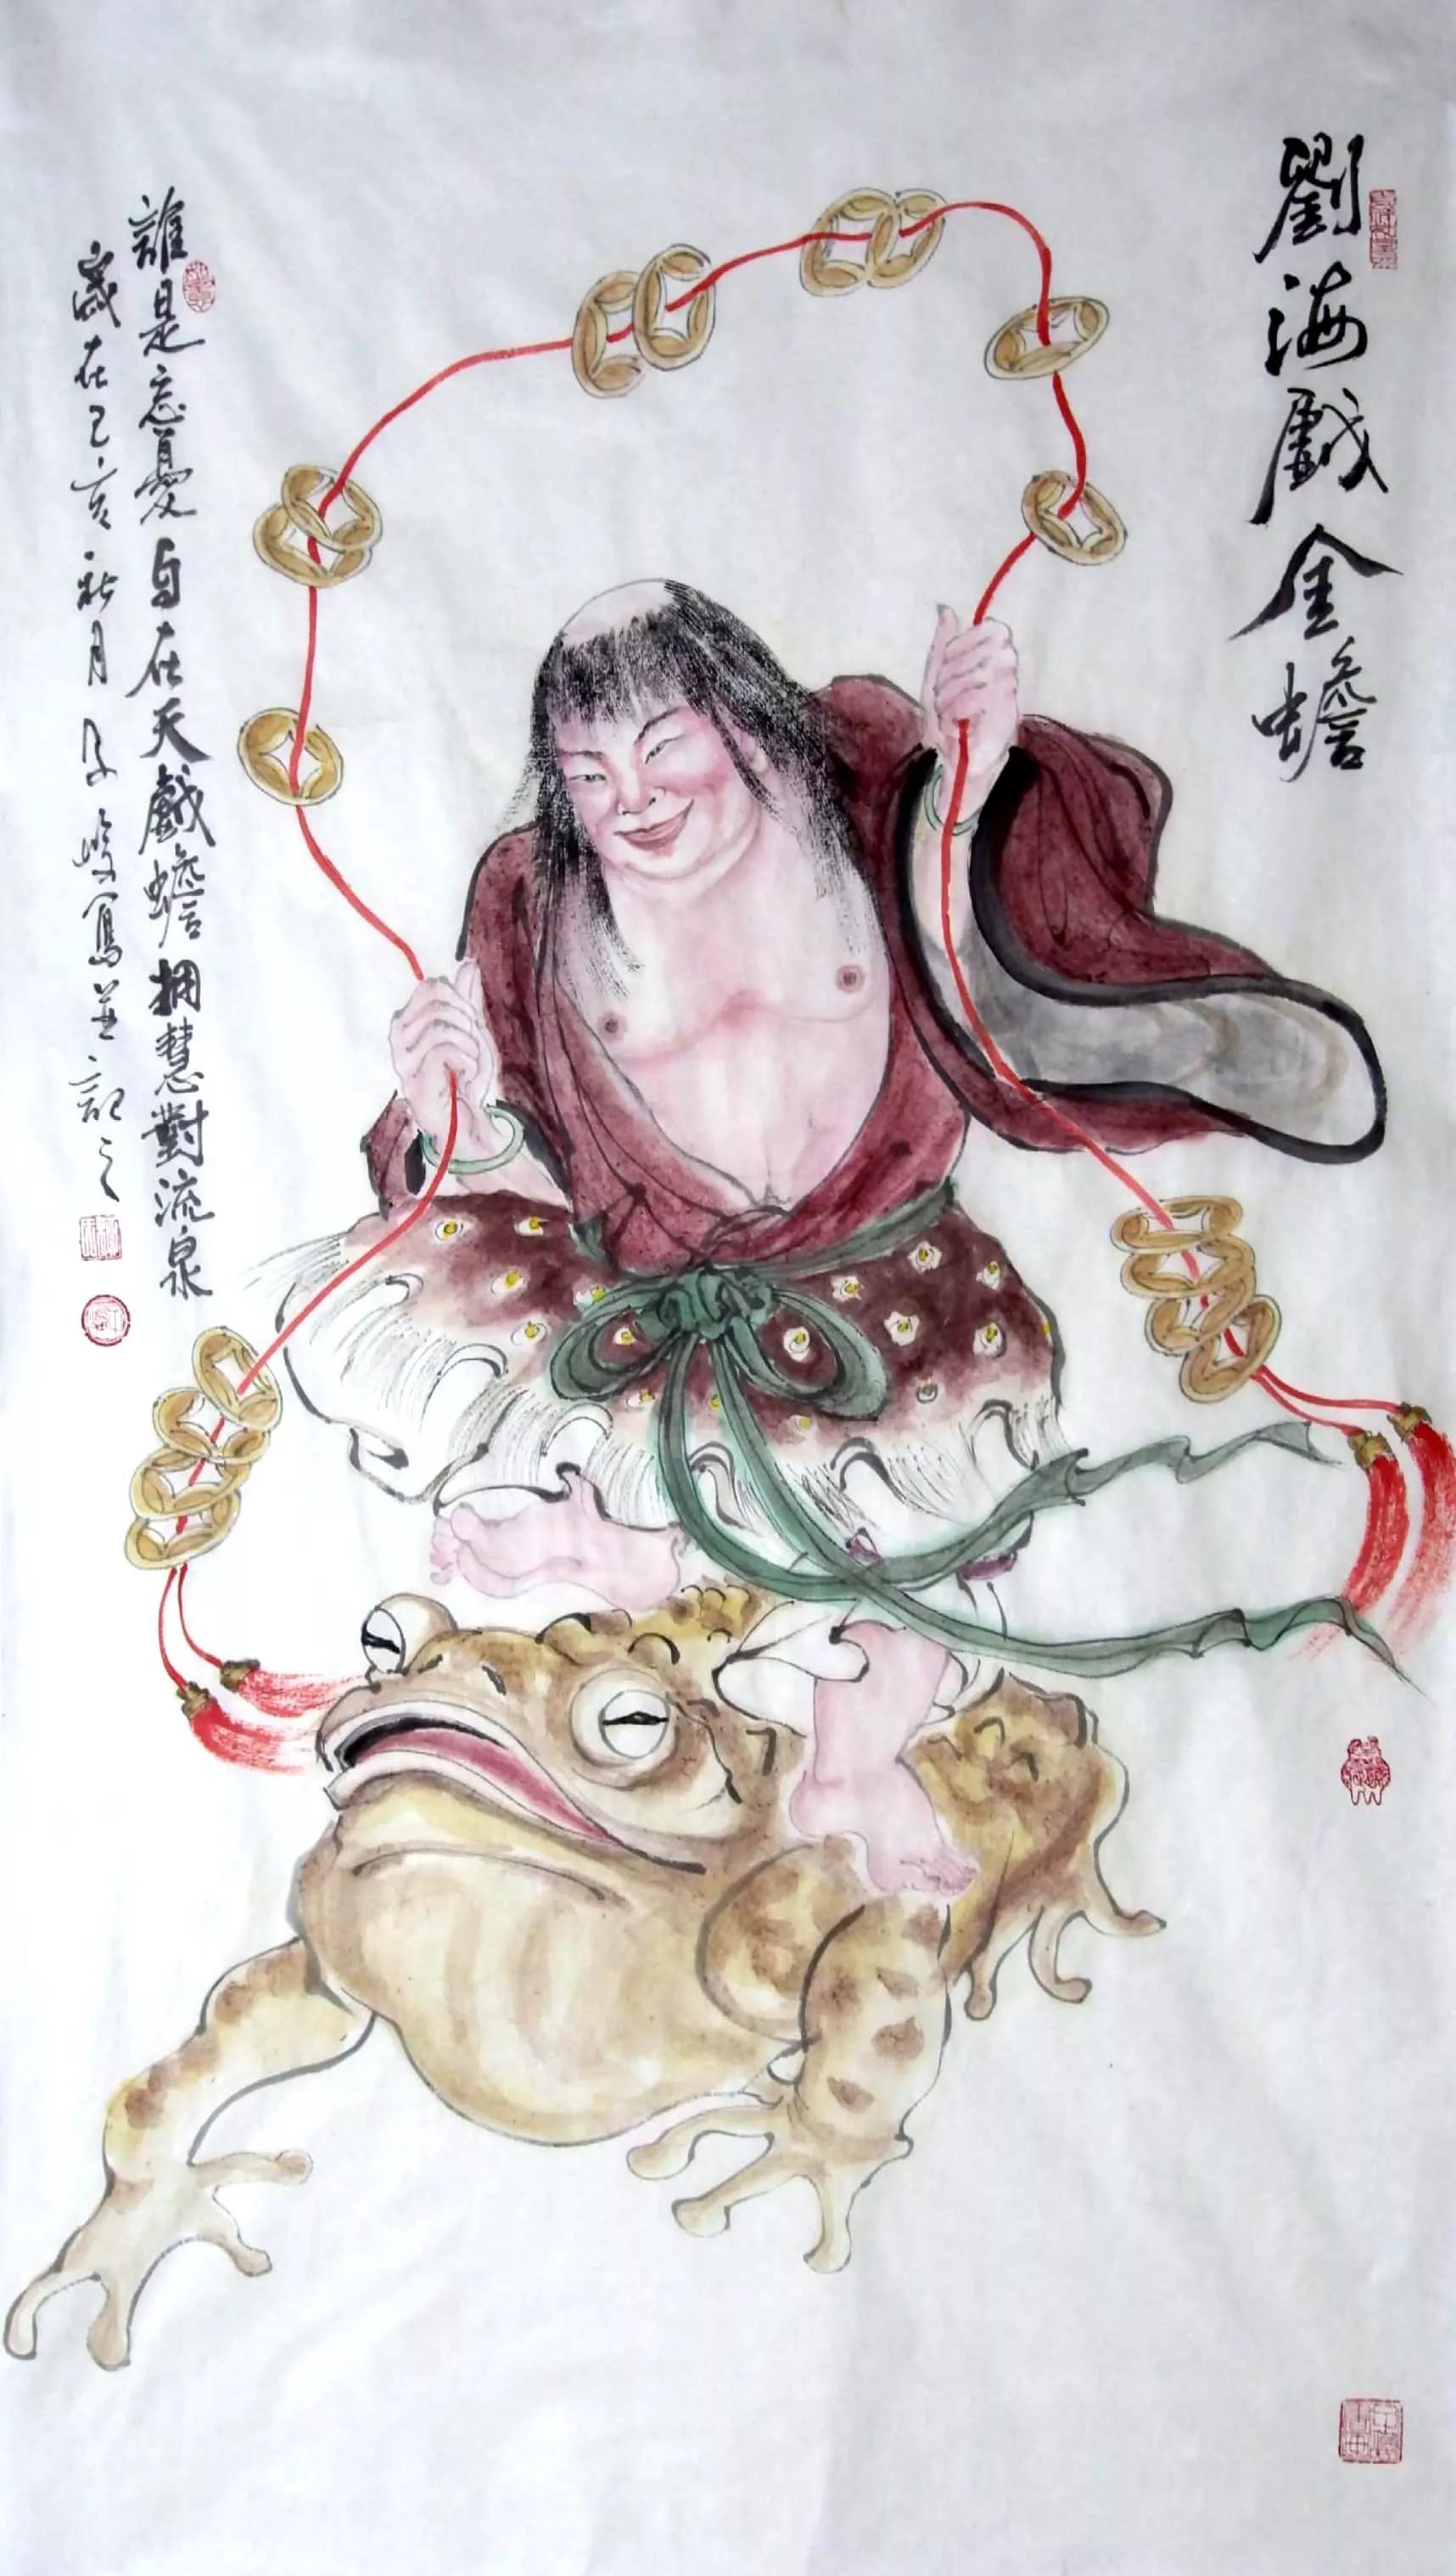 劉海戲金蟾
誰是忘憂自在天戲蟾擁慧對流泉
歲在己亥秋月子峻寫並記之